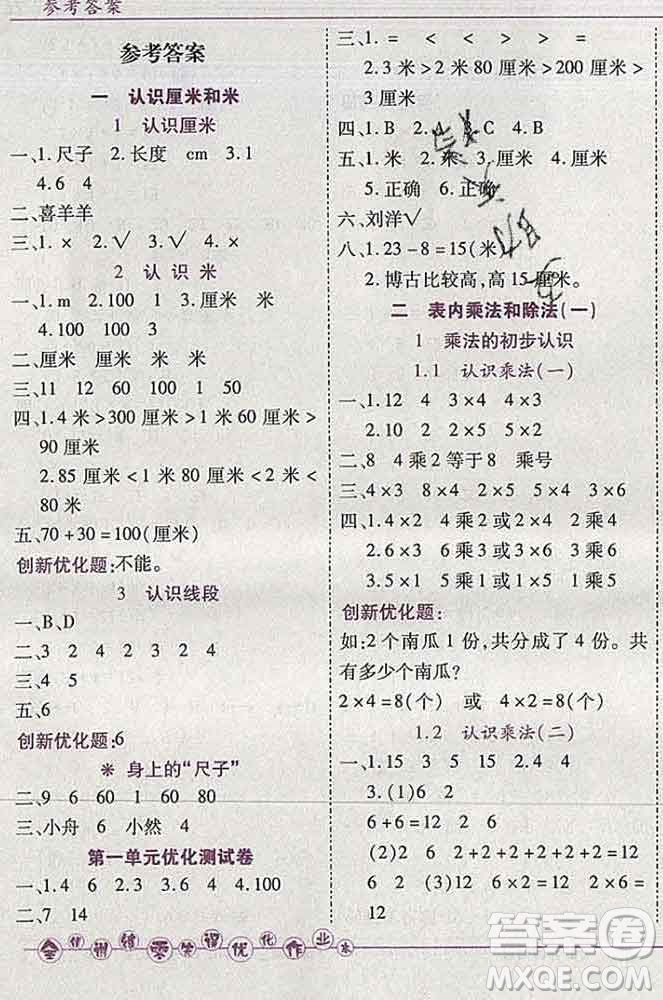 参考答案
参考答案
一 认识厘米和米
1 认识厘米
一、1.尺子 2.长度 cm 3.1
4.6 4
二、喜羊羊
三、1.× 2.√ 3.√
2 认识米
一、1.m 2.100 1 3.100
二、厘米 厘米 米 厘米 米
三、11 12 60 100
四、1.4米>300厘米>1米60厘米>
90厘米
2.85厘米<1米80厘米<2米<
80米
五、70+30=100(厘米)
创新优化题:不能。
3 认识线段
一、B、D
二、3 2 4 2 3 2 4
三、4 5
五、6
创新优化题:6
※ 身上的“尺子”
二、9 6 60 1 60 80
三、小舟 小然 4
第一单元优化测试卷
一、1.4 6 2.3 3.6 4 4.100
二、7 14
三、1.= < < > < >
2.3米>2米80厘米>200厘米>
3厘米
四、1.B 2.4 3.C 4.B
五、1.米 2.米 3.厘米 4.厘米
5.正确 6.正确
六、刘洋√
八、1.23-8=15(米)
2.博古比较高,高15厘米。
二 表内乘法和除法(一)
1 乘法的初步认识
1.1 认识乘法(一)
一、1.12 4 3×4 4×3
2.10 2 2×5 5×2
二、8 4乘2等于8 乘号
三、4×3 8×4 2×6 5×5
四、1.4×2 4乘2或2×4
2.6×3 6乘3或3×6
3.5×1 5乘1或1×5
创新优化题:
如:2个南瓜1份,共分成了4份。共
有多少个南瓜?
2×4=8(个) 或 4×2=8(个)
1.2 认识乘法(二)
一、1.15 3 5 2.4 4
3.(1)6 2
6+6=12 6×2=12
(2)2 6 2+2+2+2+2+2=12
6×2=12 2×6=12 6 2
12
答案圈
MXQE.COM